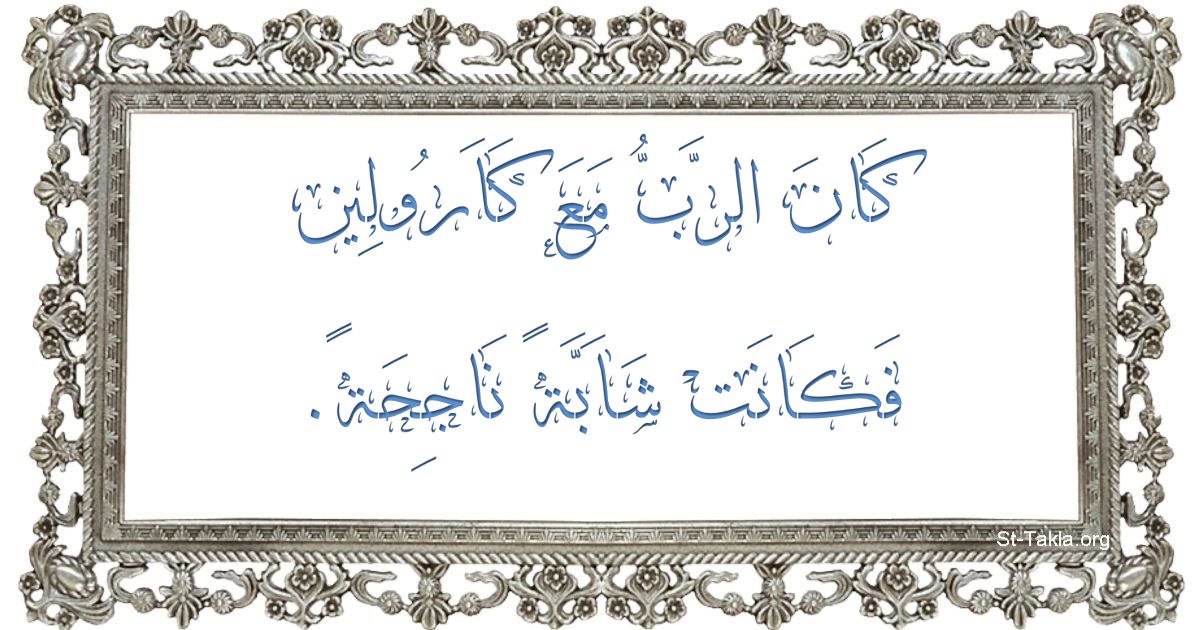 كَانَ الرَّبُّ مَعَ كَارُولِين
فَكَانَتْ شَابَّةً نَاجِحَةً.
St-Takla.org